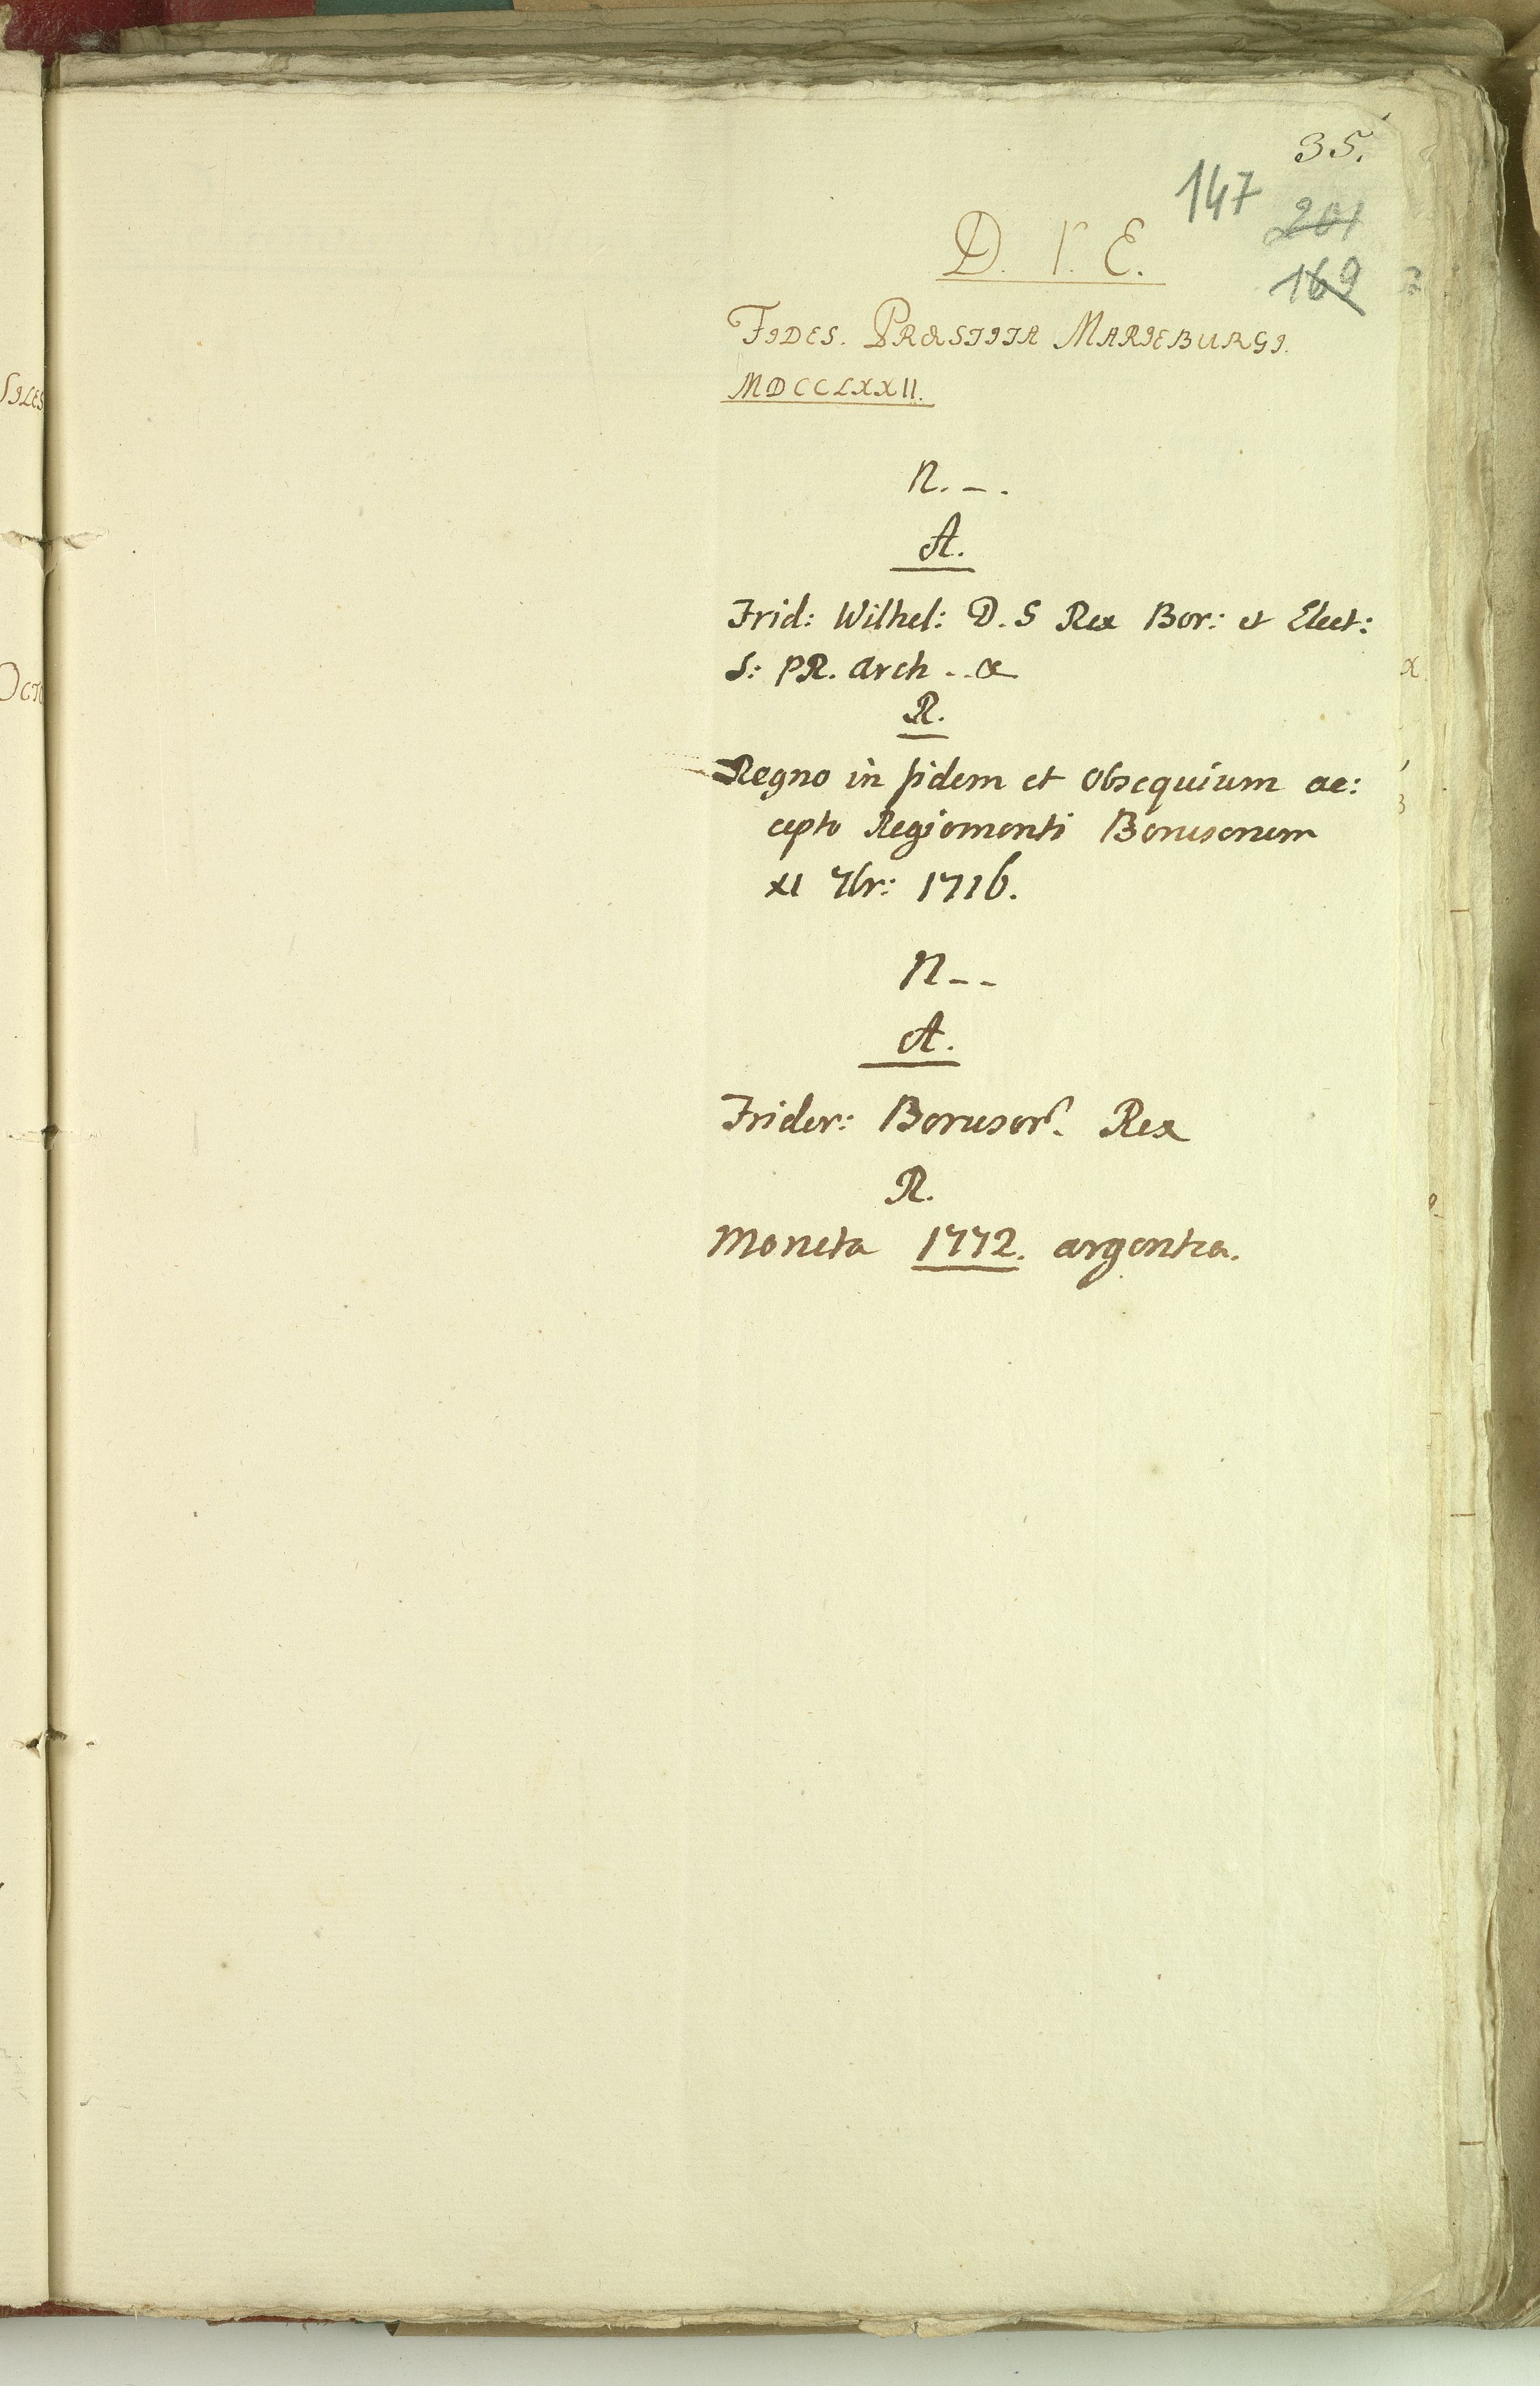 35.
147
201
169
D. V. E.
FIDES. PRÆSTITA MARIEBURGI.
MDCCLXXII.
N. _ .
A.
Frid: Wilhel: D. S Rex Bor: et Elect:
S: PR. Arch . . &
R.
Regno in fidem et Obsequium ac:
cepto Regiomonti Borusorum
XI 7br: 1716.
N _ _
A.
Frider: Borusor. Rex
R.
Moneta 1772. argentea.